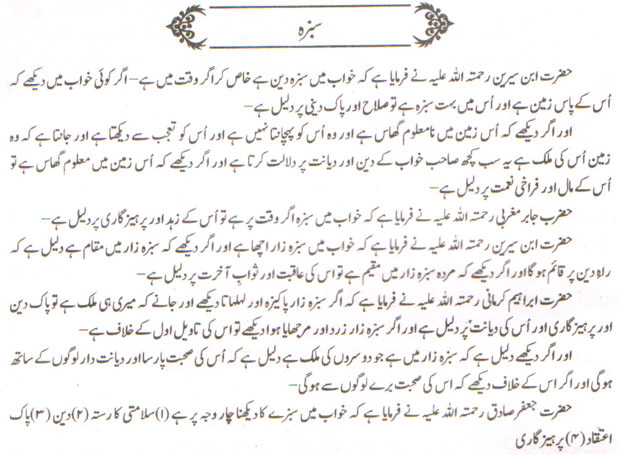 سبزہ
حضرت ابن سیرین رحمتہ اللہ علیہ نے فرمایا ہے کہ خواب میں سبزہ دین ہے خاص کر اگر وقت میں ہے – اگر کوئی خواب میں دیکھے کہ
اُس کے پاس زمین ہے اور اُس میں بہت سبزہ ہے تو صلاح اور پاک دینی پر دلیل ہے –
اور اگر دیکھے کہ اُس زمین میں نامعلوم گھاس ہے اور وہ اُس کو پہچانتا نہیں ہے اور اُس کو تعجب سے دیکھتا ہے اور جانتا ہے کہ وہ
زمین اُس کی ملک ہے یہ سب کچھ صاحب خواب کے دین اور دیانت پر دلالت کرتا ہے اور اگر دیکھے کہ اُس زمین میں معلوم گھاس ہے تو
اُس کے مال اور فراخی نعمت پر دلیل ہے –
حضرب جابر مغربی رحمتہ اللہ علیہ نے فرمایا ہے کہ خواب میں سبزہ اگر وقت پر ہے تو اُس کے زہد اور پرہیز گاری پر دلیل ہے –
حضرت ابن سیرین رحمتہ اللہ علیہ نے فرمایا ہے کہ خواب میں سبزہ زار اچھا ہے اور اگر دیکھے کہ سبزہ زار میں مقام ہے دلیل ہے کہ
راہِ دین پر قائم ہو گا اور اگر دیکھے کہ مردہ سبزہ زار میں مقیم ہے تو اس کی عاقبت اور ثواب آخرت پر دلیل ہے –
حضرت ابراہیم کرمانی رحمتہ اللہ علیہ نے فرمایا ہے کہ اگر سبزہ زار پاکیزہ اور لہلہاتا دیکھے اور جانے کہ میری ہی ملک ہے تو پاک دین
اور پرہیز گاری اور اُس کی دیانت پر دلیل ہے اور اگر سبزہ زار زرد اور مرجھایا ہوا دیکھے تو اس کی تاویل اول کے خلاف ہے –
اور اگر دیکھے دلیل ہے کہ سبزہ زار میں ہے جو دوسروں کی ملک ہے دلیل ہے کہ اُس کی صحبت پارسا اور دیانت دار لوگوں کے ساتھ
ہو گی اور اگر اس کے خلاف دیکھے کہ اس کی صحبت برے لوگوں سے ہو گی –
حضرت جعفر صادق رحمتہ اللہ علیہ نے فرمایا ہے کہ خواب میں سبزے کا دیکھنا چار وجہ پر ہے (۱) سلامتی کا رستہ (۲) دین (۳) پاک
اعتقاد (۴) پرہیز گاری